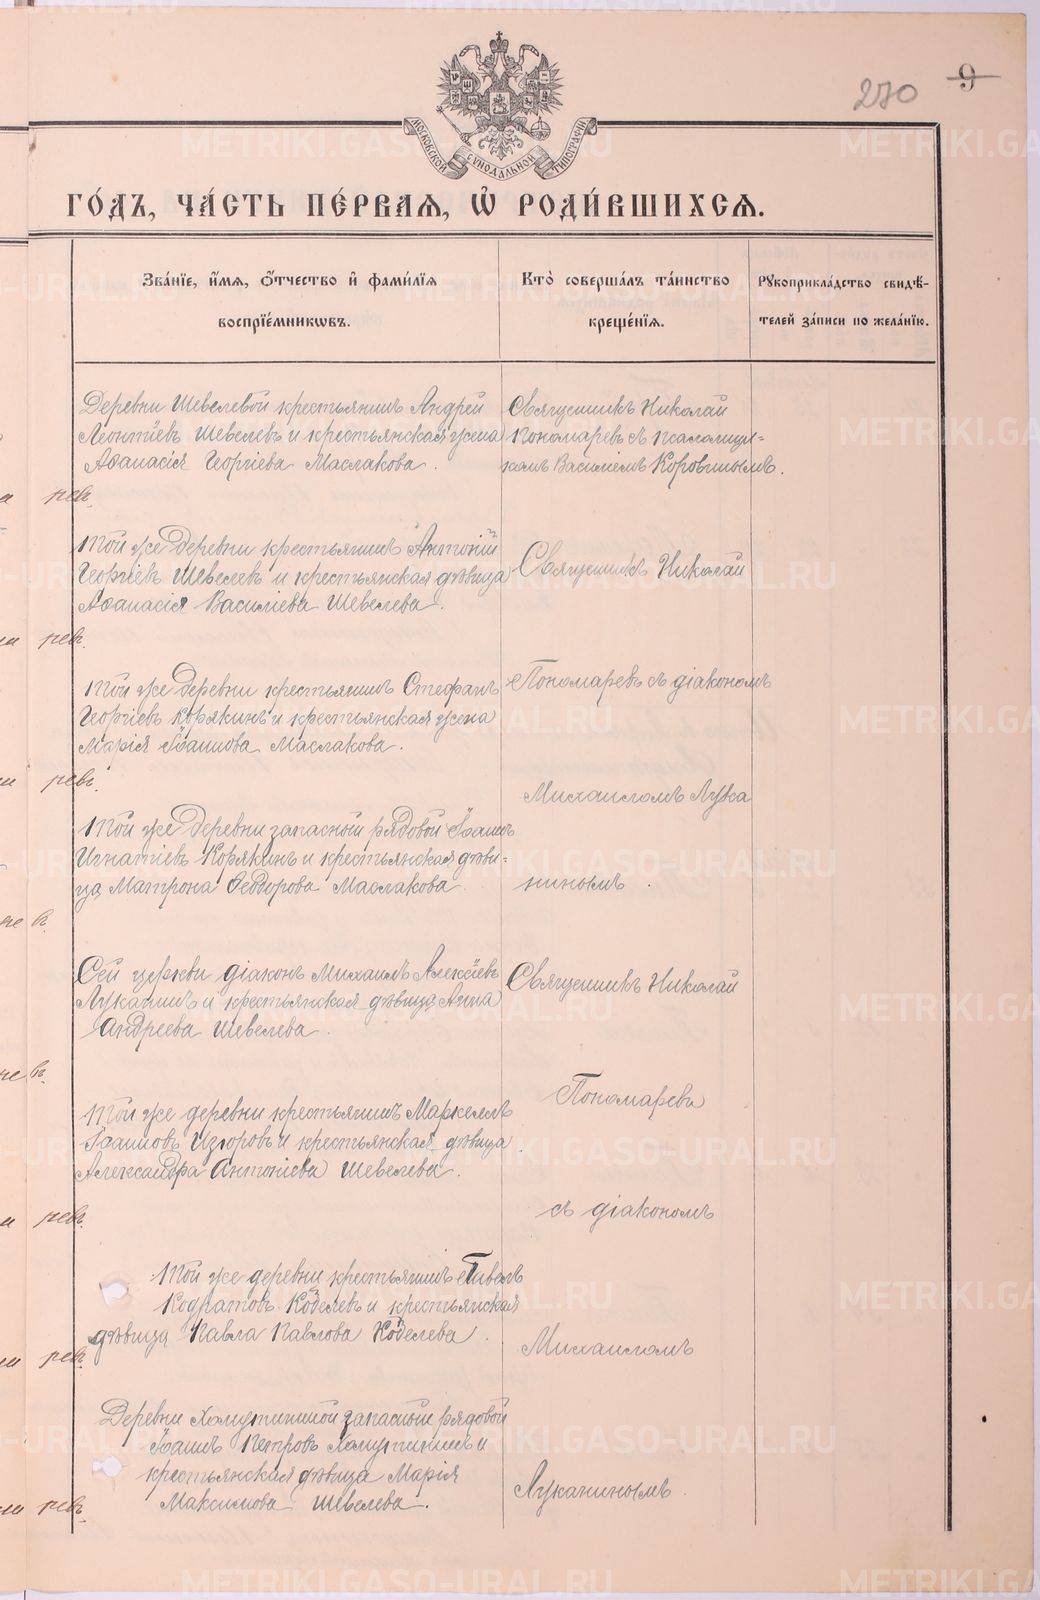 270 9
МОСКОВСКОЙ СУНОДАЛЬНОЙ ТИПОГРАФІИ
ГО́ДЪ, ЧА́СТЬ ПЕ́РВАѦ, Ѽ РОДИ́ВШИХСѦ.
Зва́нїе, и҆́мѧ, ѻ҆́тчество и҆ фами́лїѧ
воспрїе́мникѡвъ.
Кто̀ соверша́лъ та́инство
креще́нїѧ.
Рꙋкоприкла́дство свидѣ́-
телей за́писи по жела́нїю.
Деревни Шевелевой крестьянинъ Андрей
Леонтіевъ Шевелевъ и крестьянская жена
Аѳанасія Георгіева Маслакова.
Священникъ Николай
Пономаревъ съ псаломщи-
комъ Василіемъ Коровинымъ.
Той же деревни крестьянинъ Антоній
Георгіевъ Шевелевъ и крестьянская дѣвица
Аѳанасія Василіева Шевелева.
Священникъ Николай
Той же деревни крестьянинъ Стефанъ
Георгіевъ Корякинъ и крестьянская жена
Марія Іоаннова Маслакова.
Пономаревъ съ діакономъ
Михаиломъ Лука
Той же деревни запасный рядовой Іоаннъ
Игнатіевъ Корякинъ и крестьянская дѣви-
ца Матрона Ѳеодорова Маслакова
нинымъ.
Сей церкви діаконъ Михаилъ Алексѣевъ
Луканинъ и крестьянская дѣвица Анна
Андреева Шевелева.
Священникъ Николай
Пономаревъ
Той же деревни крестьянинъ Маркеллъ
Іоанновъ Изгоровъ и крестьянская дѣвица
Александра Антоніева Шевелева.
съ діакономъ
Той же деревни крестьянинъ Павелъ
Кодратовъ Кобелевъ и крестьянская
дѣвица Павла Павлова Кобелева.
Михаиломъ
Деревни Хомутининой запасный рядовой
Іоаннъ Петровъ Хомутининъ и
крестьянская дѣвица Марія
Максимова Шевелева.
Луканинымъ
METRIKI.GASO-URAL.RU